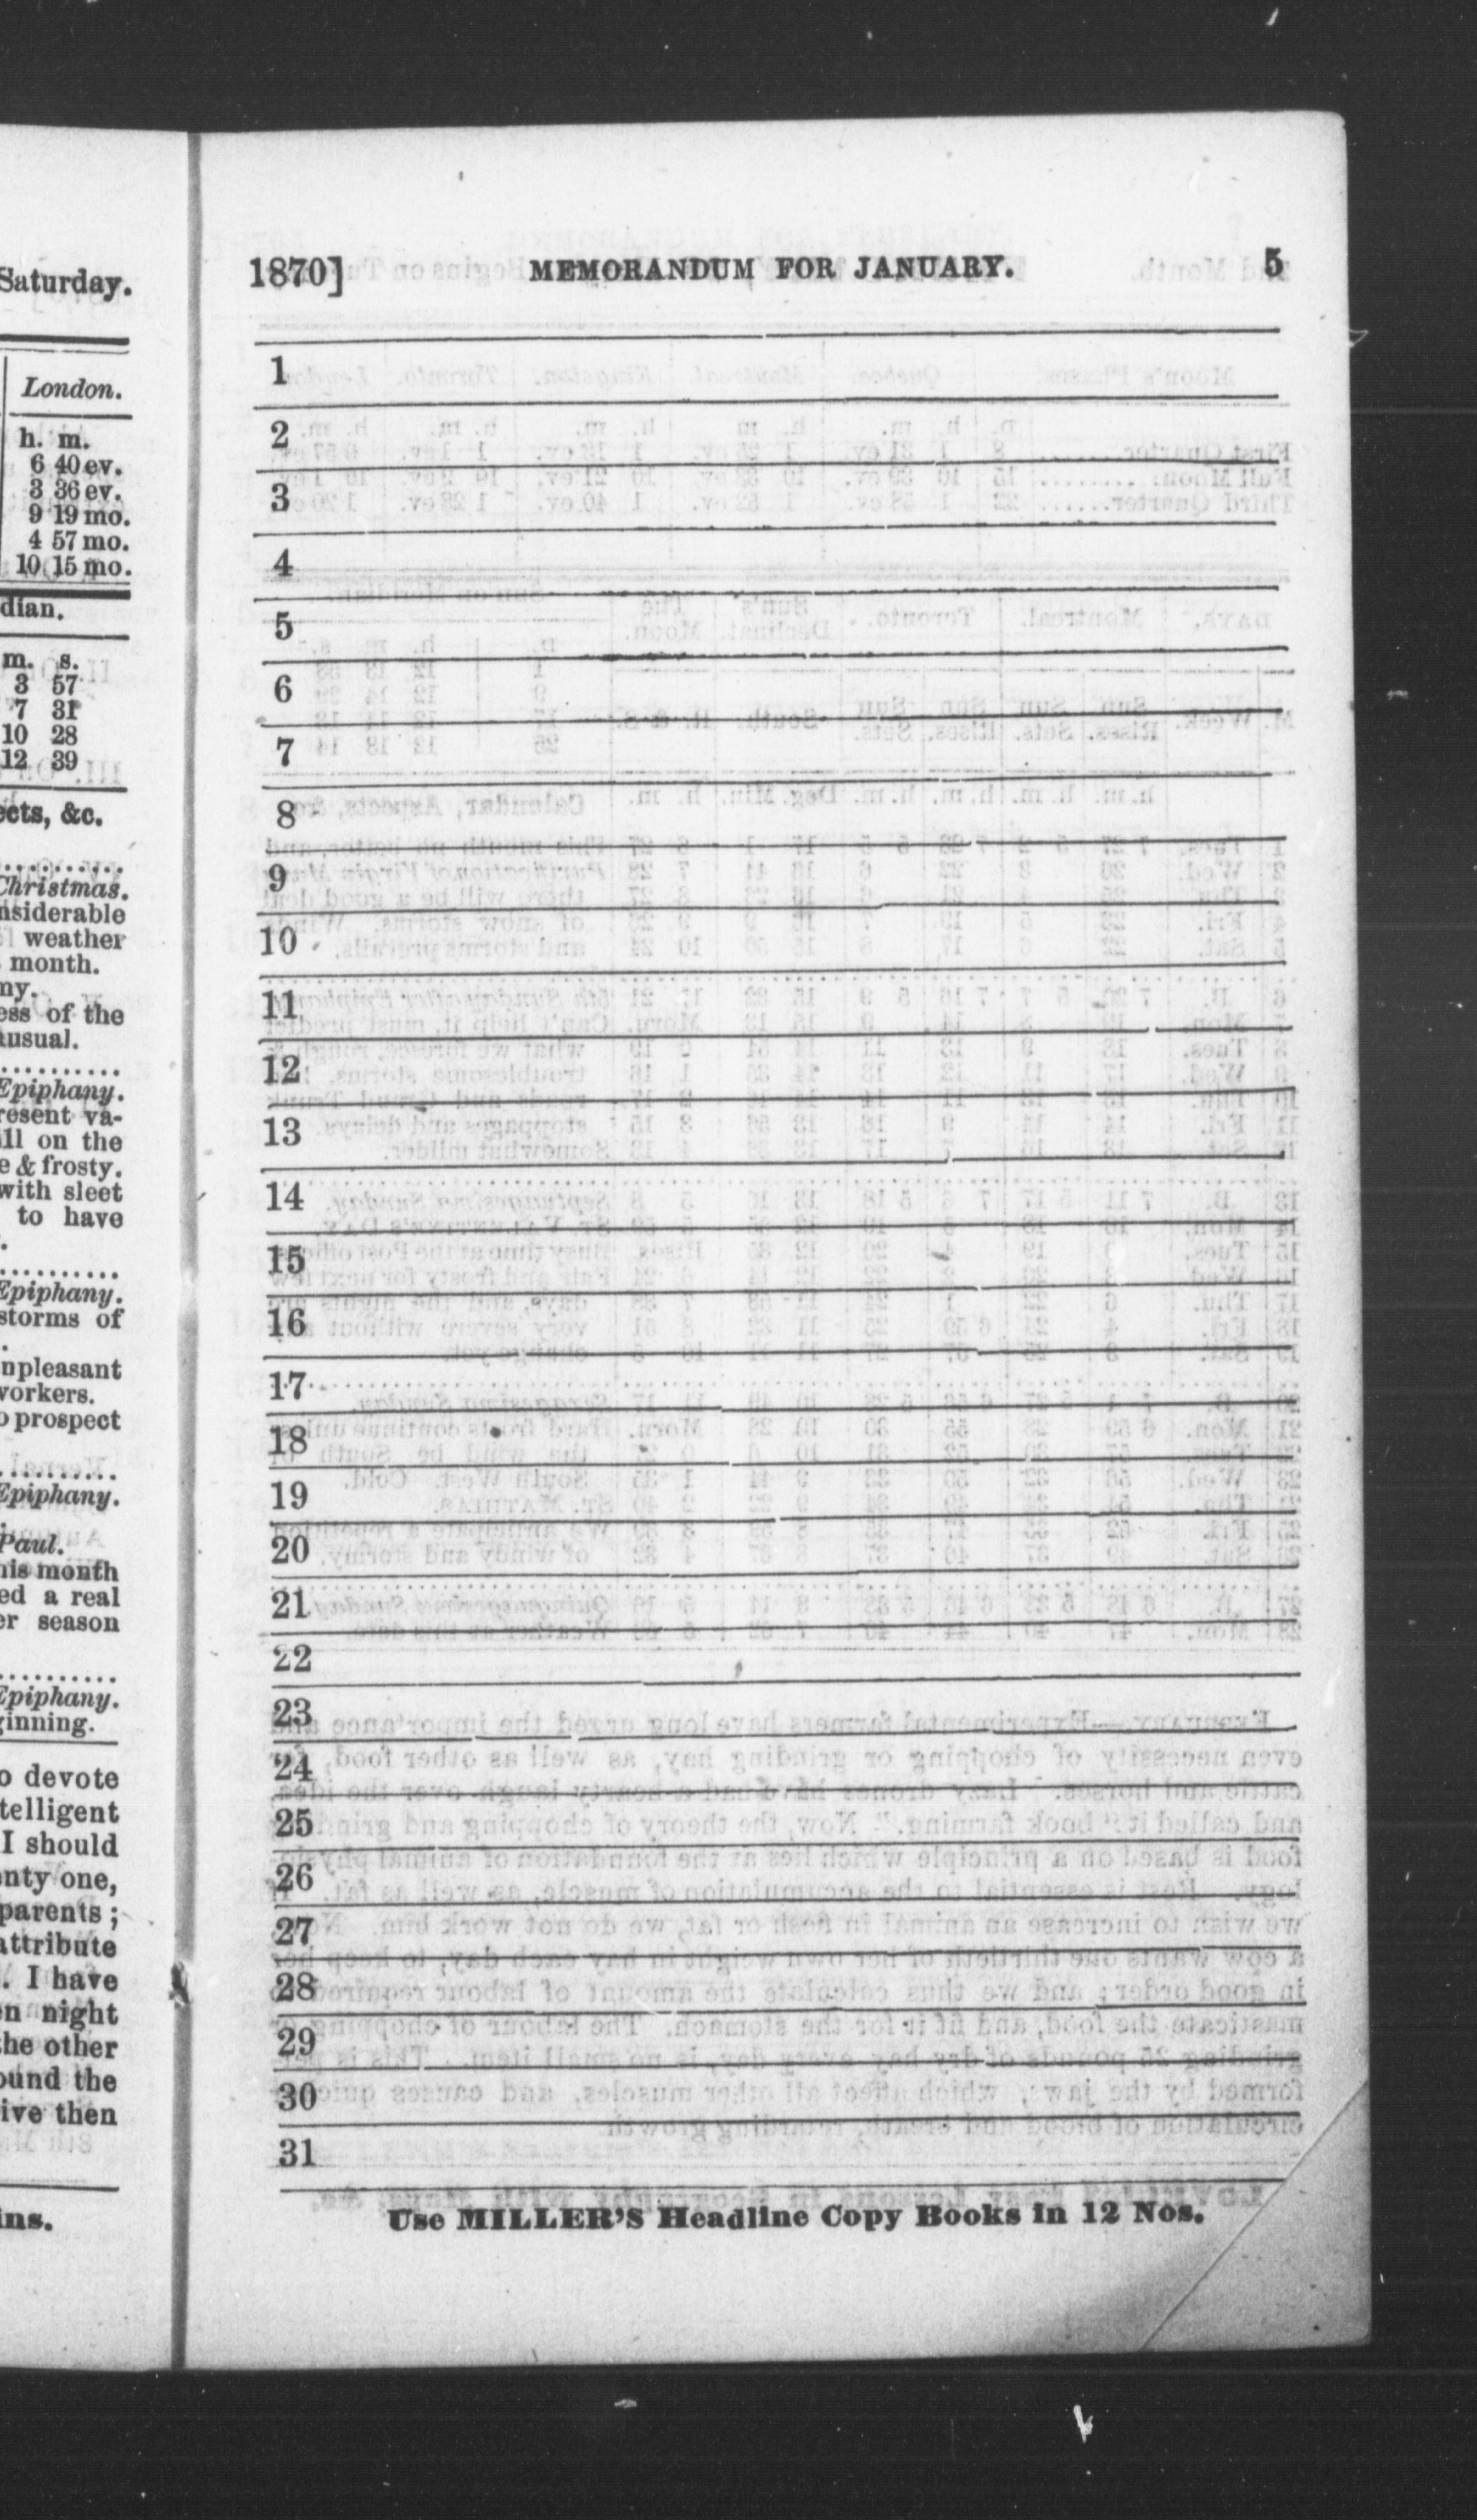 Saturday.
London.
h. m.
6 40 ev.
3 36 ev.
9 19 mo.
4 57 mo.
10 15 mo.
dian.
m. s.
3 57
7 31
10 28
12 39
ects, &c.
Christmas.
nsiderable
weather
month.
ny.
ess of the
usual.
Epiphany.
resent va-
ll on the
e & frosty.
with sleet
to have
Epiphany.
storms of
npleasant
workers.
o prospect
Epiphany.
Paul.
his month
ed a real
er season
Epiphany.
ginning.
o devote
telligent
I should
enty one,
parents;
attribute
. I have
en night
the other
ound the
ive then
ins.
1870] MEMORANDUM FOR JANUARY. 5
1
2
3
4
5
6
7
8
9
10
11
12
13
14
15
16
17
18
19
20
21
22
23
24
25
26
27
28
29
30
31
Use MILLER'S Headline Copy Books in 12 Nos.